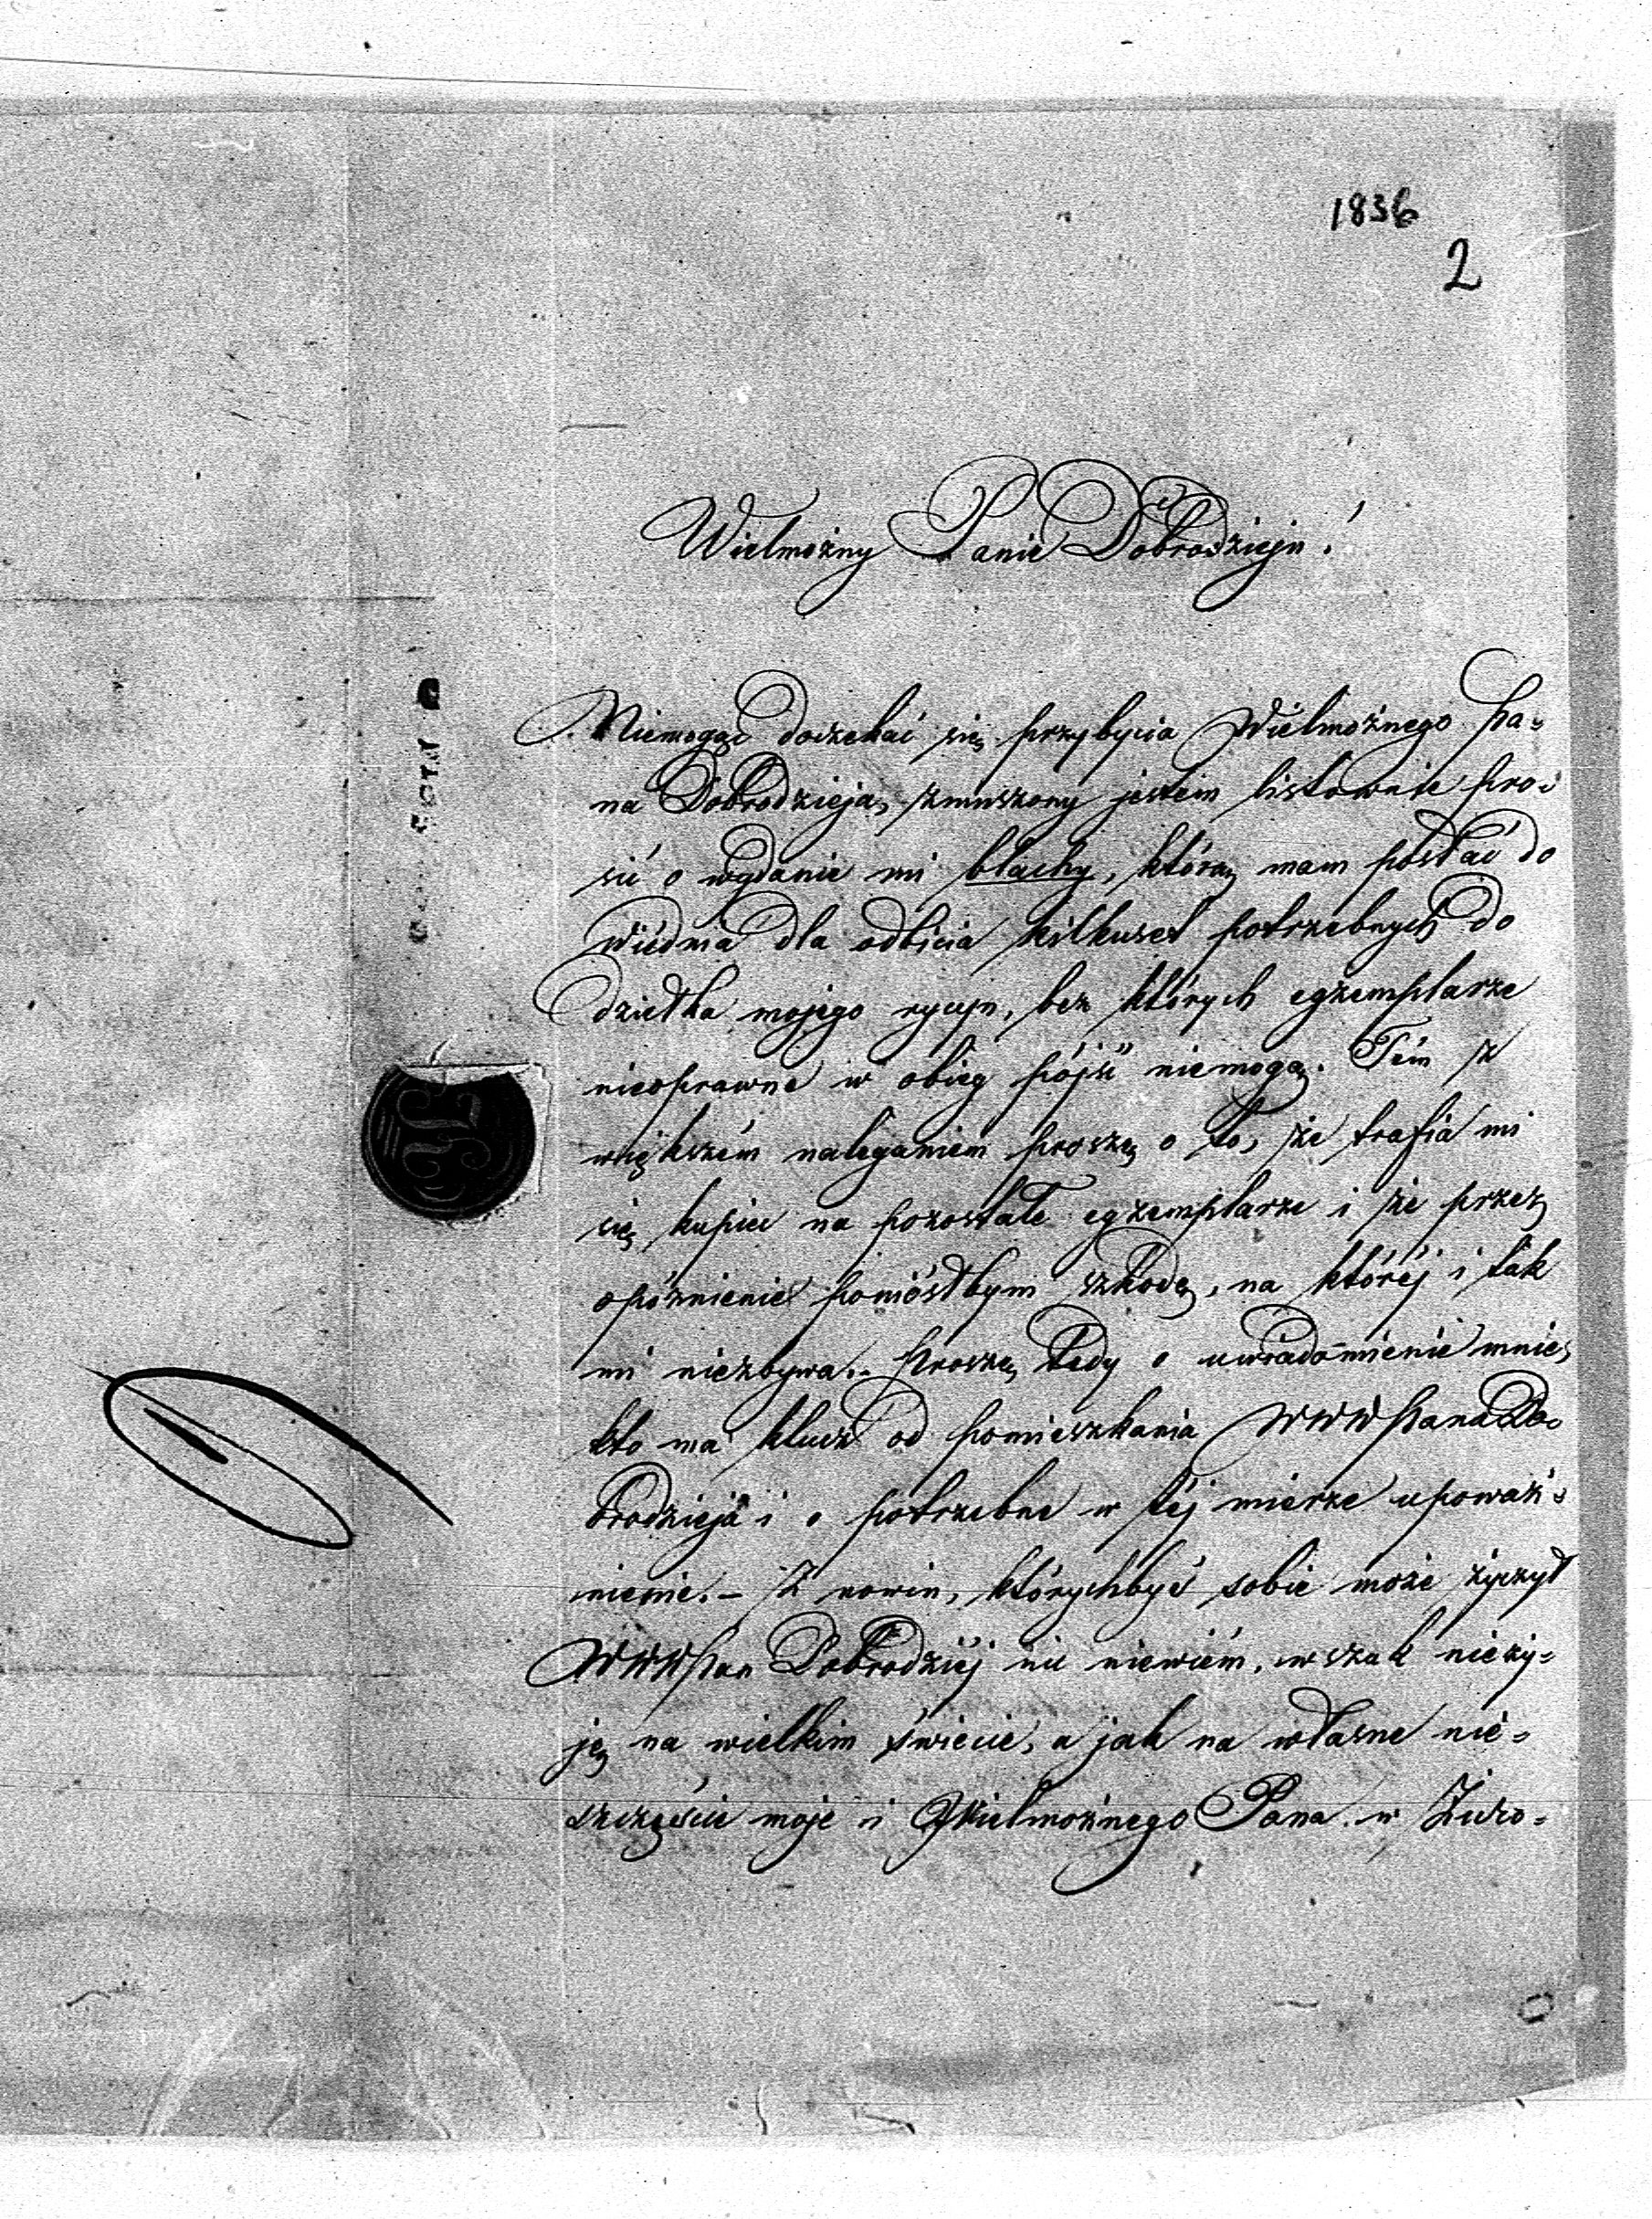 1836
2
Wielmożny Panie Dobrodzieju!
Niemogąc doczekać się przybycia Wielmożnego Pa-
na Dobrodzieja, zmuszony jestem listownie pro-
sić o wydanie mi blachy, którą mam posłać do
Wiédnia dla odbicia kilkuset potrzebnych do
dziełka mojego rycyn, bez których egzemplarze
nieoprawne w obieg pójść niemogą. Tém z
większém naleganiem proszę o to, że trafia mi
się kupiec na pozostałe egzemplarze i że przez
opóźnienie poniósłbym szkodę, na któréj i tak
mi niezbywa. - Proszę tedy o uwiadomienie mnie,
kto ma klucz od pomieszkania WWWPana Do-
brodzieja i o potrzebne w téj mierze upoważ-
nienie. - Z nowin, którychbyś sobie może życzył
WWWPan Dobrodziéj nic niewiém, wszak nieży-
ję na wielkim świecie, a jak na własne nie-
szczęście moje i Wielmożnego Pana w